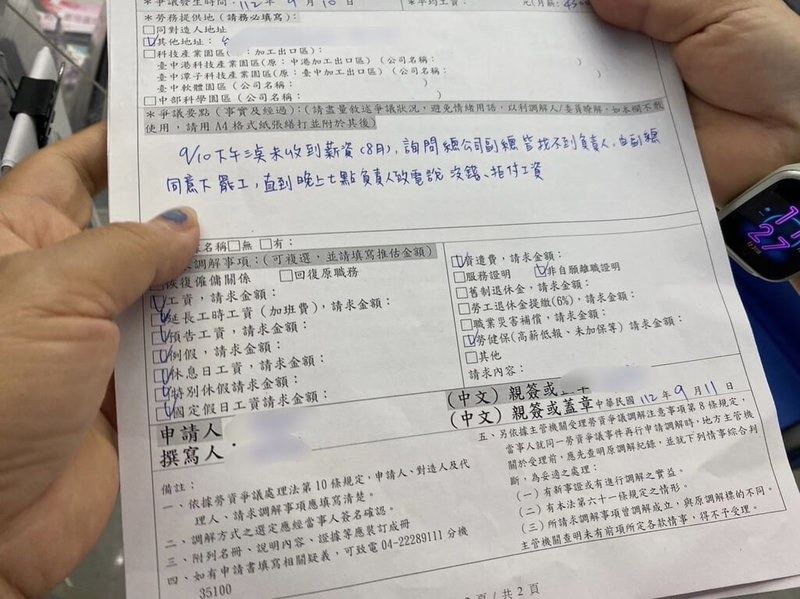 *爭議發生時間：112年9月10日 *平均工資： 元(月薪：45
*勞務提供地（請務必填寫）：
□同對造人地址
☑其他地址：
□科技產業園區(原：加工出口區)：
臺中港科技產業園區(原：中港加工出口區)（公司名稱： ）
臺中潭子科技產業園區(原：臺中加工出口區)（公司名稱： ）
臺中軟體園區（公司名稱： ）
□中部科學園區（公司名稱： ）
*爭議要點（事實及經過）：(請盡量敘述爭議狀況，避免情緒用語，以利調解人/委員瞭解，如本欄不敷
使用，請用A4格式紙張繕打並附於其後)
9/10下午三點未收到薪資(8月)，詢問總公司副總皆找不到負責人，由副總
同意下罷工，直到晚上七點負責人致電說沒錢、拒付工資
名稱□無 □有：
調解事項：(可複選，並請填寫推估金額)
□恢復僱傭關係 □回復原職務
☑工資，請求金額：
☑延長工時工資（加班費），請求金額：
☑預告工資，請求金額：
☑例假，請求金額：
☑休息日工資，請求金額：
☑特別休假請求金額：
☑國定假日工資請求金額：
☑資遣費，請求金額：
□服務證明 ☑非自願離職證明
□舊制退休金，請求金額：
□勞工退休金提繳(6%)，請求金額：
□職業災害補償，請求金額：
☑勞健保(高薪低報、未加保等) 請求金額：
□其他
請求內容：
申請人 (中文) 親簽或
撰寫人 (中文) 親簽或蓋章
中華民國 112年9月11日
備註：
一、依據勞資爭議處理法第10條規定，申請人、對造人及代
理人、請求調解事項應填寫清楚。
二、調解方式之選定應經當事人簽名確認。
三、附列名冊、說明內容、證據等應裝訂成冊
四、如有申請書填寫相關疑義，可致電04-22289111分機
35100
五、另依據主管機關受理勞資爭議調解注意事項第8條規定，
當事人就同一勞資爭議事件再行申請調解時，地方主管機
關於受理前，應先查明原調解紀錄，並就下列情事綜合判
斷，為妥適之處理：
(一) 有新事證或有進行調解之實益。
(二) 有本法第六十一條規定之情形。
(三) 所請求調解事項曾調解成立，與原調解標的不同。
主管機關查明未有前項所定各款情事，得不予受理。
頁/共2頁
11
27